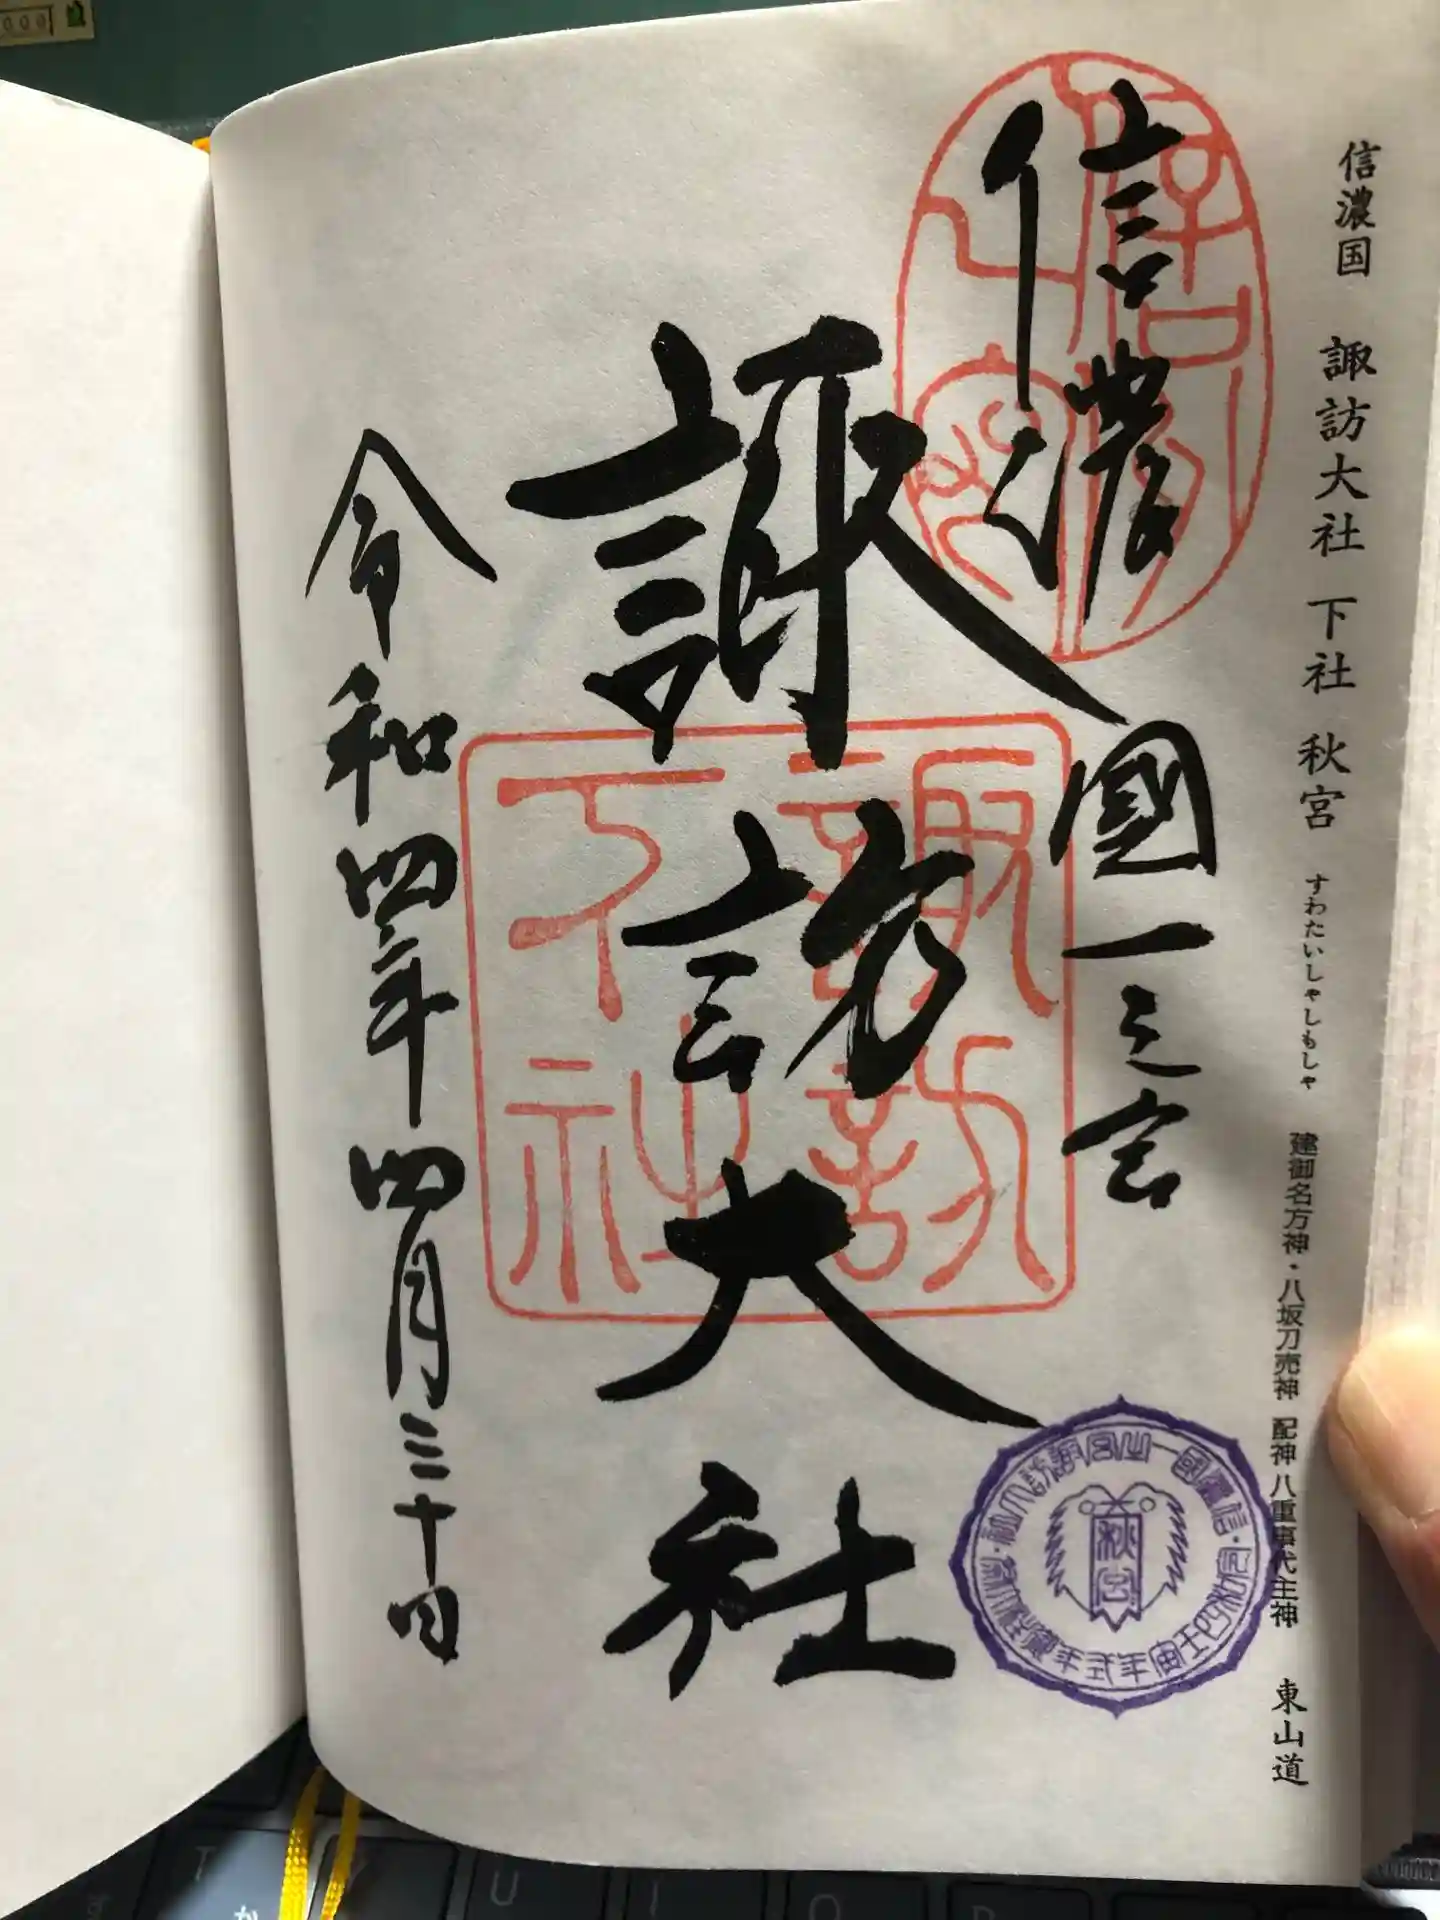 信濃国 諏訪大社 下社 秋宮 すわたいしゃしもしゃ 建御名方神・八坂刀売神 配神 八重事代主神 東山道
信濃國一之宮
諏訪大社
令和四年四月三十日
諏訪
下社
秋宮
T
か
Y
U
I
O
P